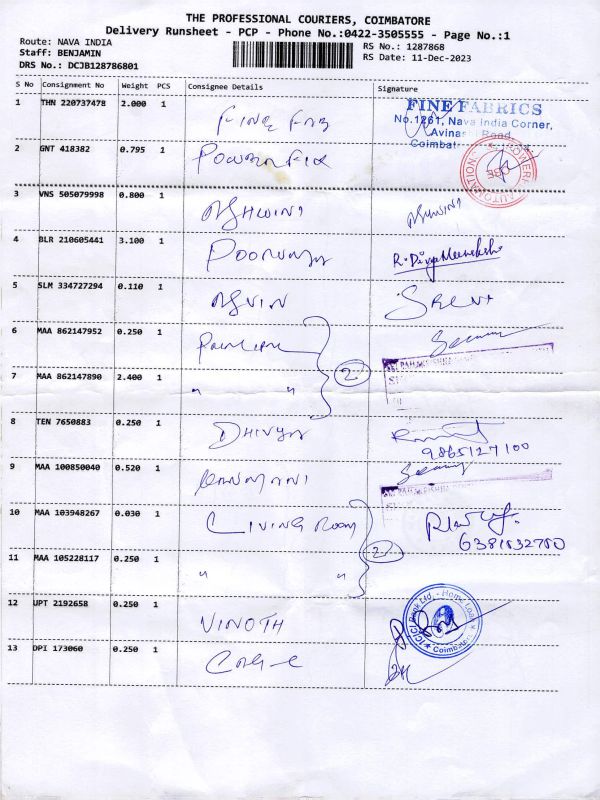 THE PROFESSIONAL COURIERS, COIMBATORE
Delivery Runsheet - PCP - Phone No.:0422-3505555 - Page No.:1
Route: NAVA INDIA
Staff: BENJAMIN
DRS No.: DCJB128786801
RS No.: 1287868
RS Date: 11-Dec-2023
S No Consignment No Weight PCS Consignee Details Signature
1 THN 220737478 2.000 1 FINE FAB
FINE FABRICS
No.1261, Nava India Corner,
Avinashi Road,
Coimbat
2 GNT 418382 0.795 1
3 VNS 505079998 0.800 1 ASHWINI ASHWINI
4 BLR 210605441 3.100 1 POORVAJA
5 SLM 334727294 0.110 1 ASVIN
6 MAA 862147952 0.250 1
2
7 MAA 862147890 2.400 1 " "
8 TEN 7650883 0.250 1 DHIVYA
9865127100
9 MAA 100850040 0.520 1 KANMANI
10 MAA 103948267 0.030 1 LIVING ROOM
6381832780
2
11 MAA 105228117 0.250 1 " "
12 UPT 2192658 0.250 1 VINOTH
ICICI Bank Ltd. - Home Loan
Coimbatore
13 DPI 173060 0.250 1